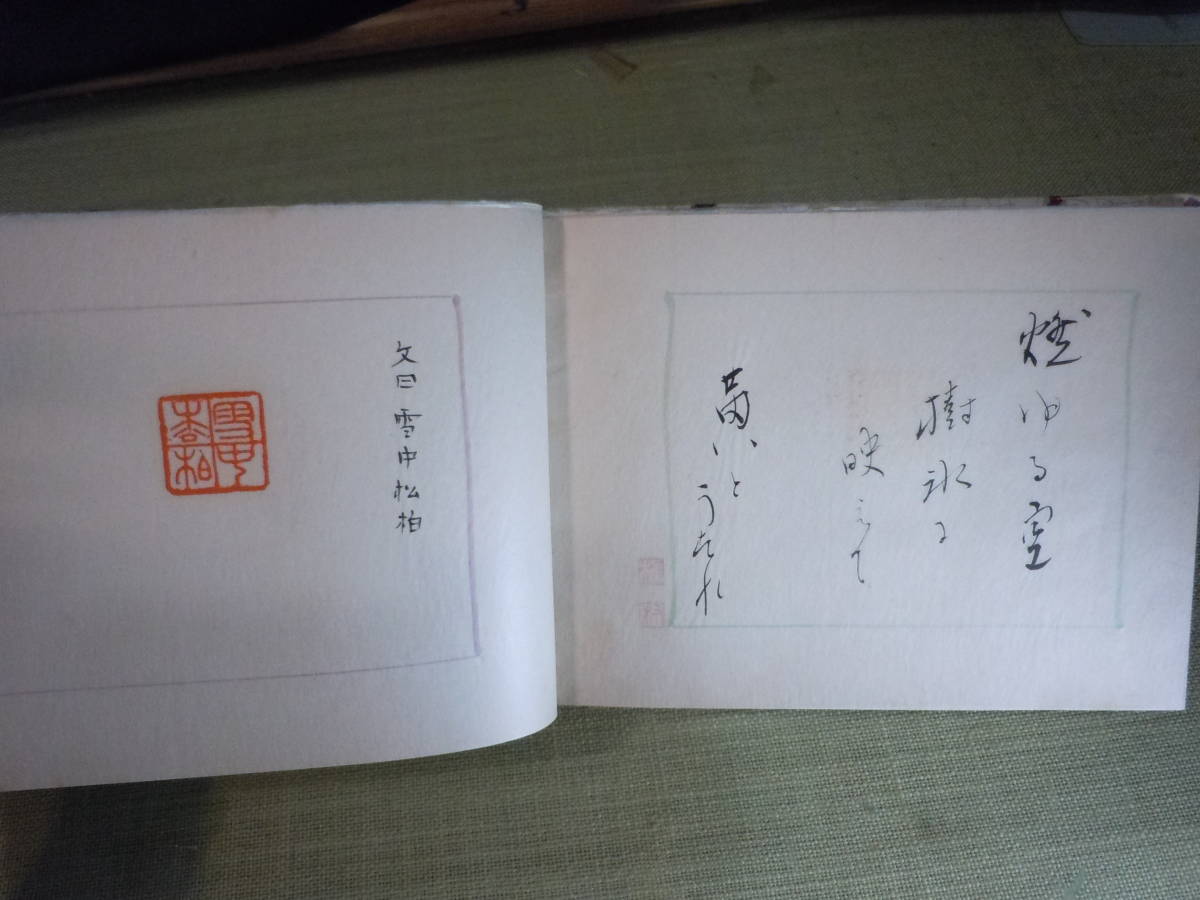 燃ゆる空
樹氷に
映えて
文曰 雪中松柏
雪中
松柏